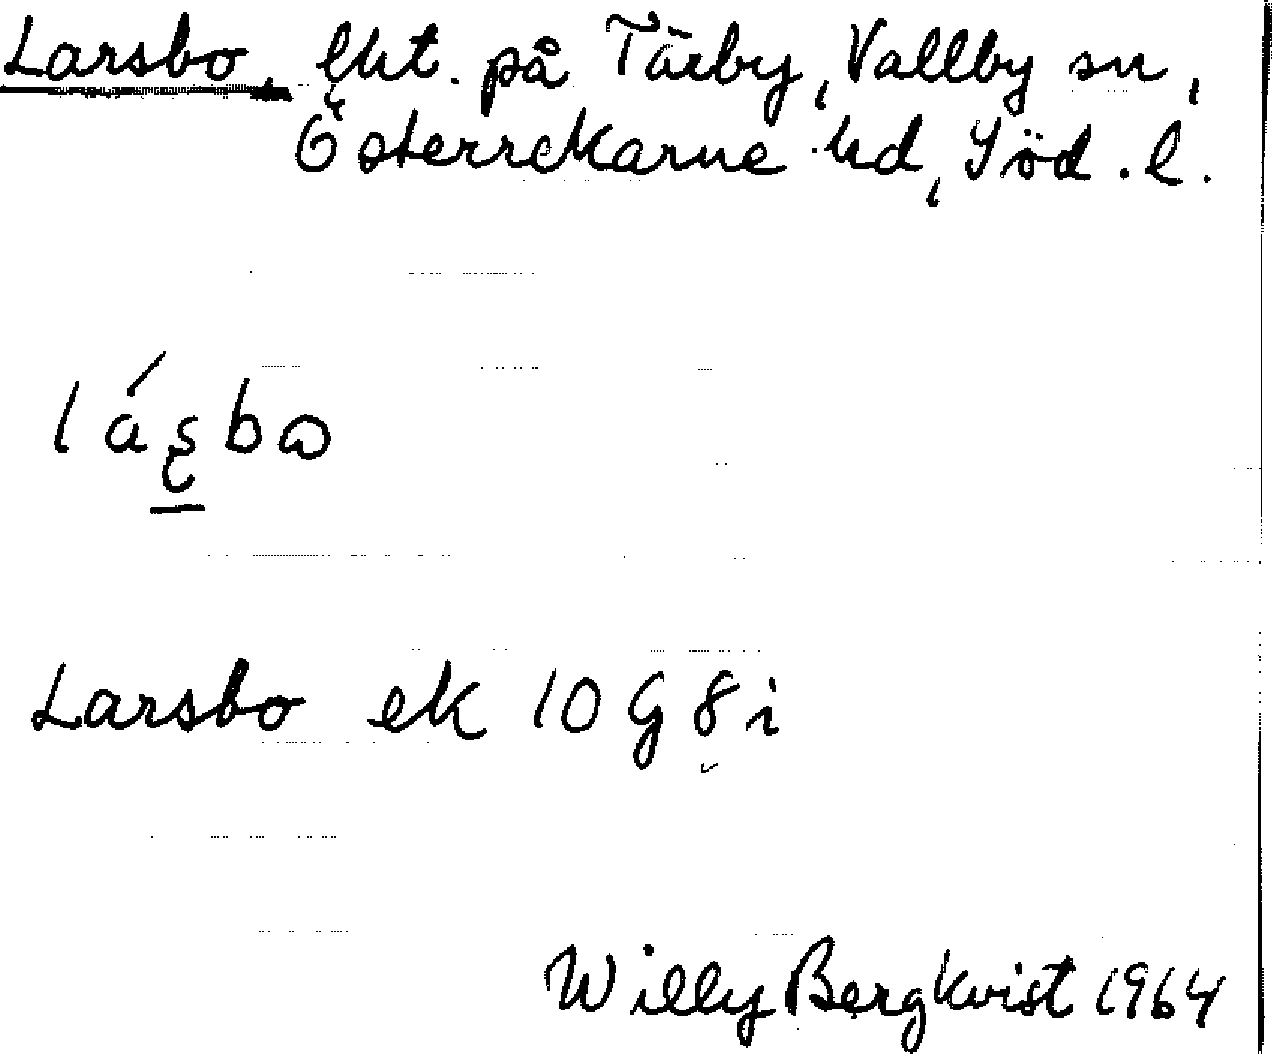 Larsbo, lht. på Tärby, Vallby sn,
Österrekarne hd, Söd. l.
lá̱sbω
Larsbo ek 10 G 8 i
Willy Bergkvist 1964